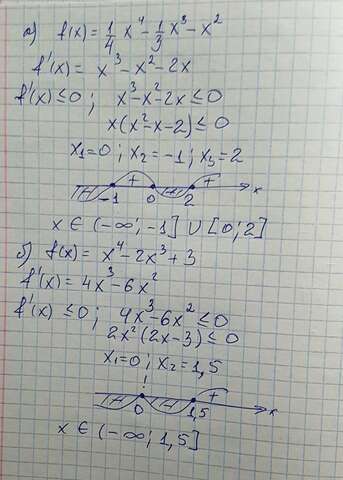 а) f(x) = 1/4 x⁴ - 1/3 x³ - x²
f'(x) = x³ - x² - 2x
f'(x) ≤ 0 ; x³ - x² - 2x ≤ 0
x(x² - x - 2) ≤ 0
x₁ = 0 ; x₂ = -1 ; x₃ = 2
- + - +
-1 0 2 x
x ∈ (-∞; -1] ∪ [0; 2]
б) f(x) = x⁴ - 2x³ + 3
f'(x) = 4x³ - 6x²
f'(x) ≤ 0 ; 4x³ - 6x² ≤ 0
2x²(2x - 3) ≤ 0
x₁ = 0 ; x₂ = 1,5
!
- - +
0 1,5 x
x ∈ (-∞; 1,5]